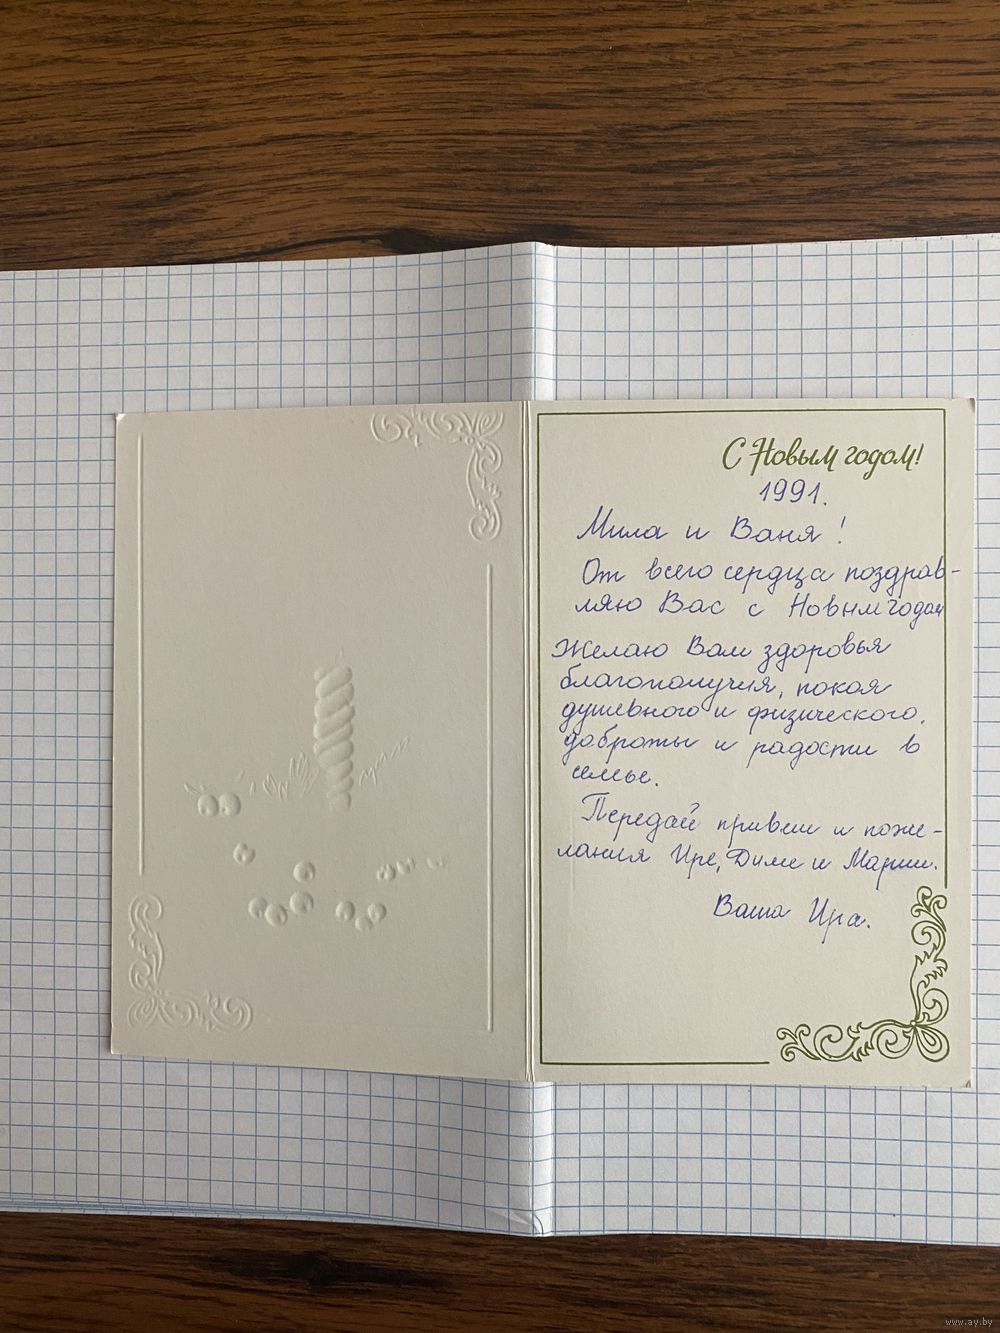 С Новым годом!
1991.
Мила и Ваня!
От всего сердца поздрав-
ляю Вас с Новым годом
Желаю Вам здоровья
благополучия, покоя
душевного и физического,
доброты и радости в
семье.
Передай привет и поже-
лания Ире, Диме и Марии.
Ваша Ира.
www.ay.by